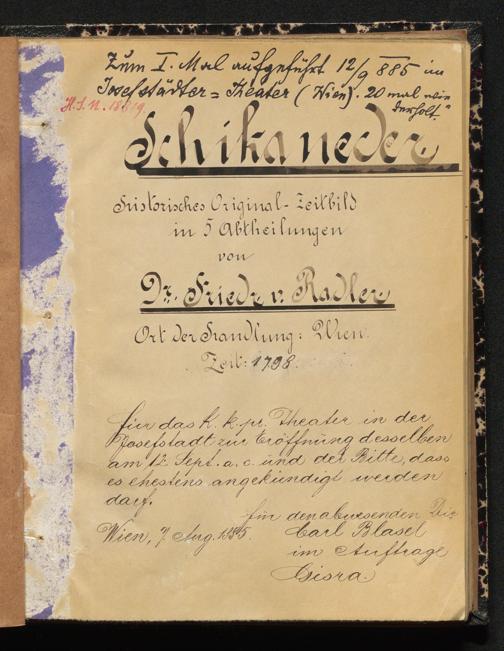 Zum I. Mal aufgeführt 12/9 885 im
Josefstädter=Theater (Wien). 20 mal wie
derholt."
H.I.N. 18819
Schikaneder
Historisches Original-Zeitbild
in 5 Abtheilungen
von
Dr. Friedr. v. Radler
Ort der Handlung: Wien.
Zeit: 1798.
für das k. k. pr. Theater in der
Josefstadt zur Eröffnung desselben
am 12. Sept. a. c. und der Bitte, dass
es ehestens angekündigt werden
darf.
Für den abwesenden Dir.
Wien, 7 Aug. 1885.
Carl Blasel
im Auftrage